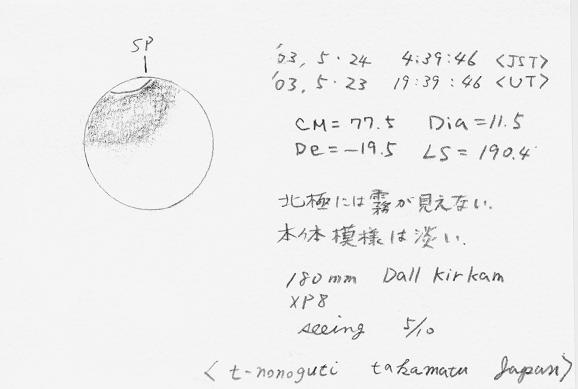 SP
'03, 5・24 4:39:46 <JST>
'03, 5・23 19:39:46 <UT>
CM=77.5 Dia=11.5
De=-19.5 LS=190.4
北極には霧が見えない.
本体模様は淡い.
180mm Dall Kirkam
XP8
seeing 5/10
<t-nonoguti takamatu Japan>